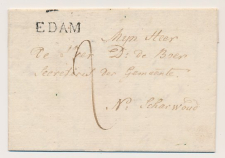 EDAM
Mijn Heer
De Heer D: de Boer
Secretaris der Gemeente
N. Scharwoud